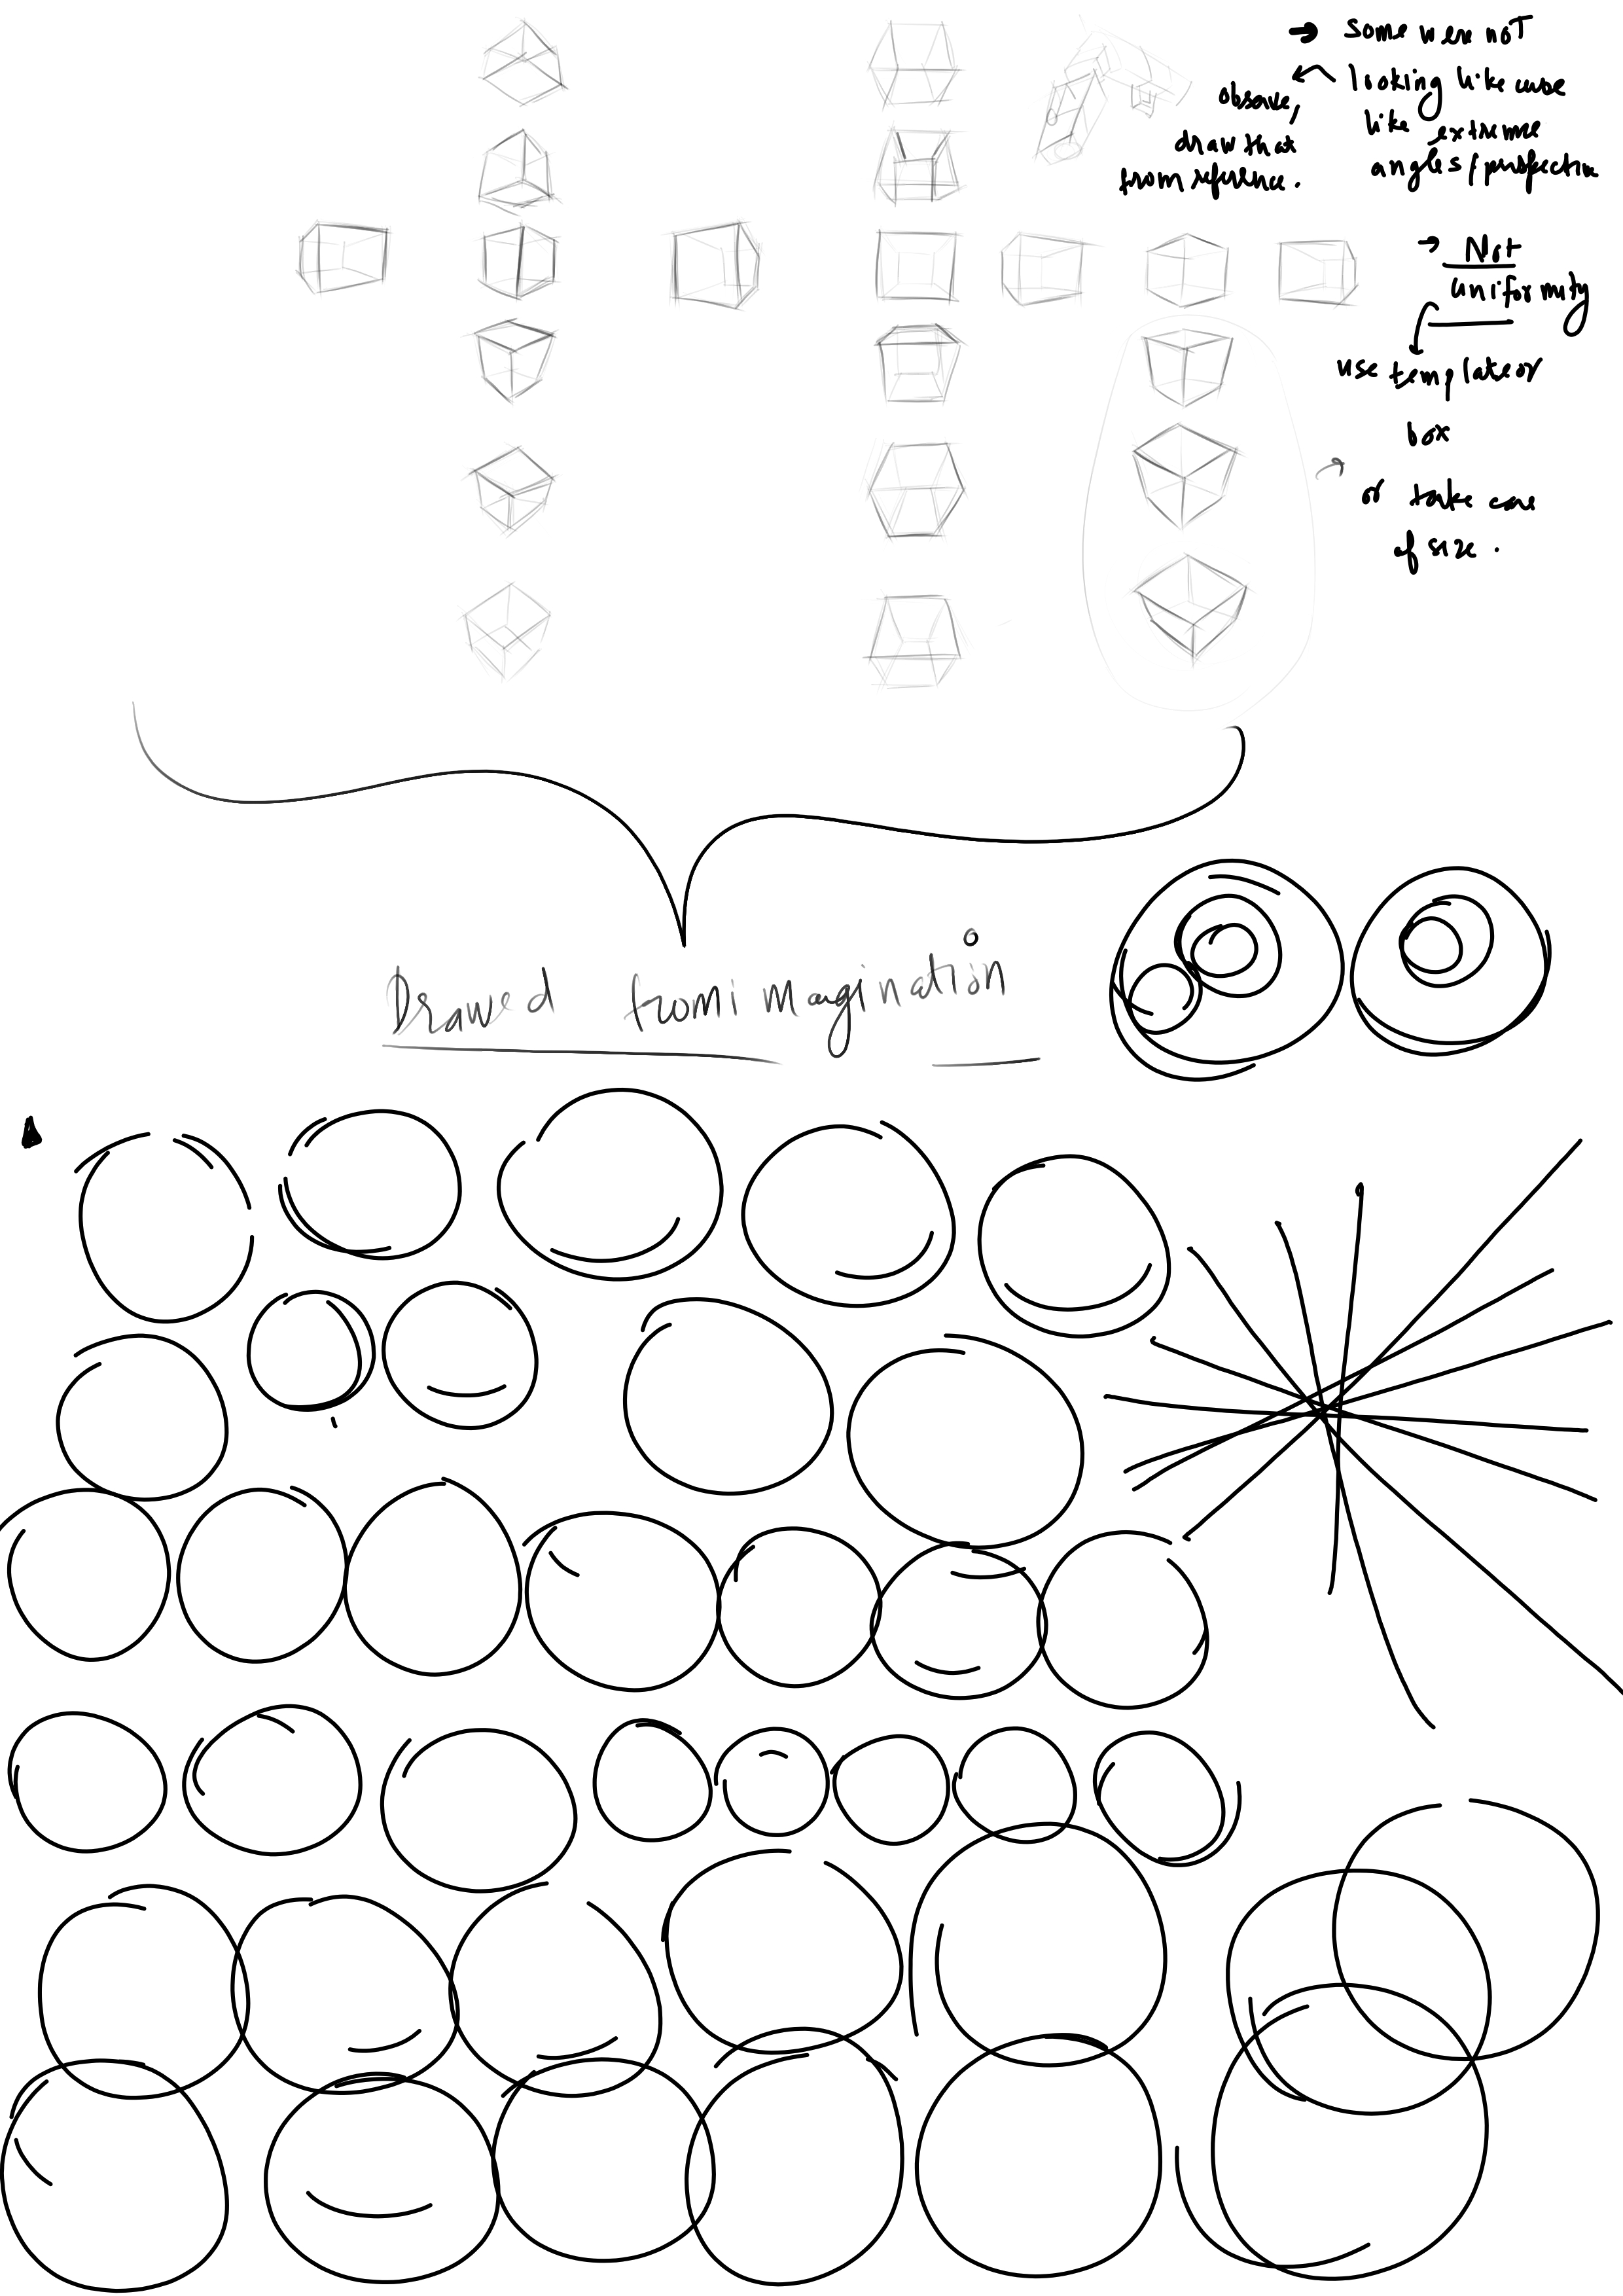 → some were not
looking like cube
like extreme
angles / perspective
observe,
draw that
from reference.
→ Not
uniformity
use template or
box
or take care
of size.
Drawed from imagination